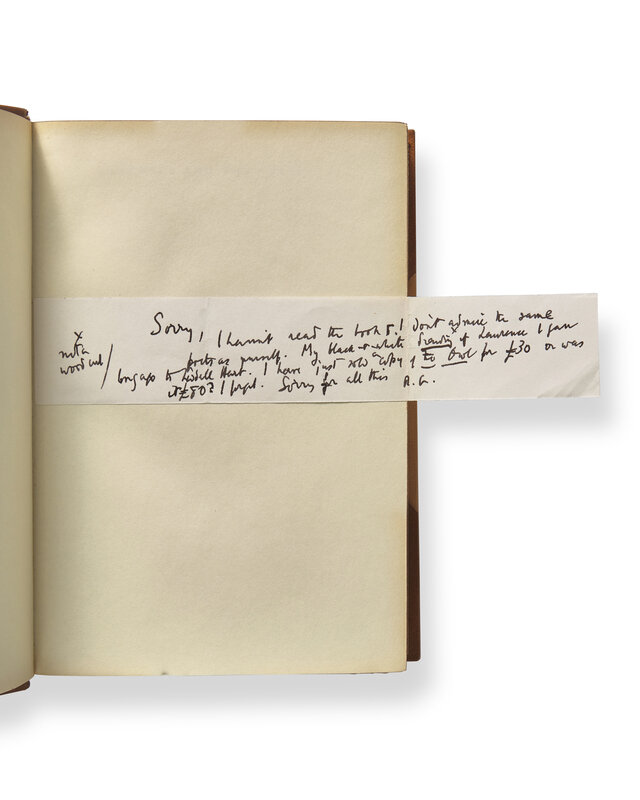 Sorry, I haven't read the book & I don't admire the same
poets as yourself. My black-&-white drawing x of Lawrence I gave
long ago to Liddell Hart. I have just sold a copy of The Owl for £30 or was
it £80? I forget. Sorry for all this R.G.
x
not a
woodcut /